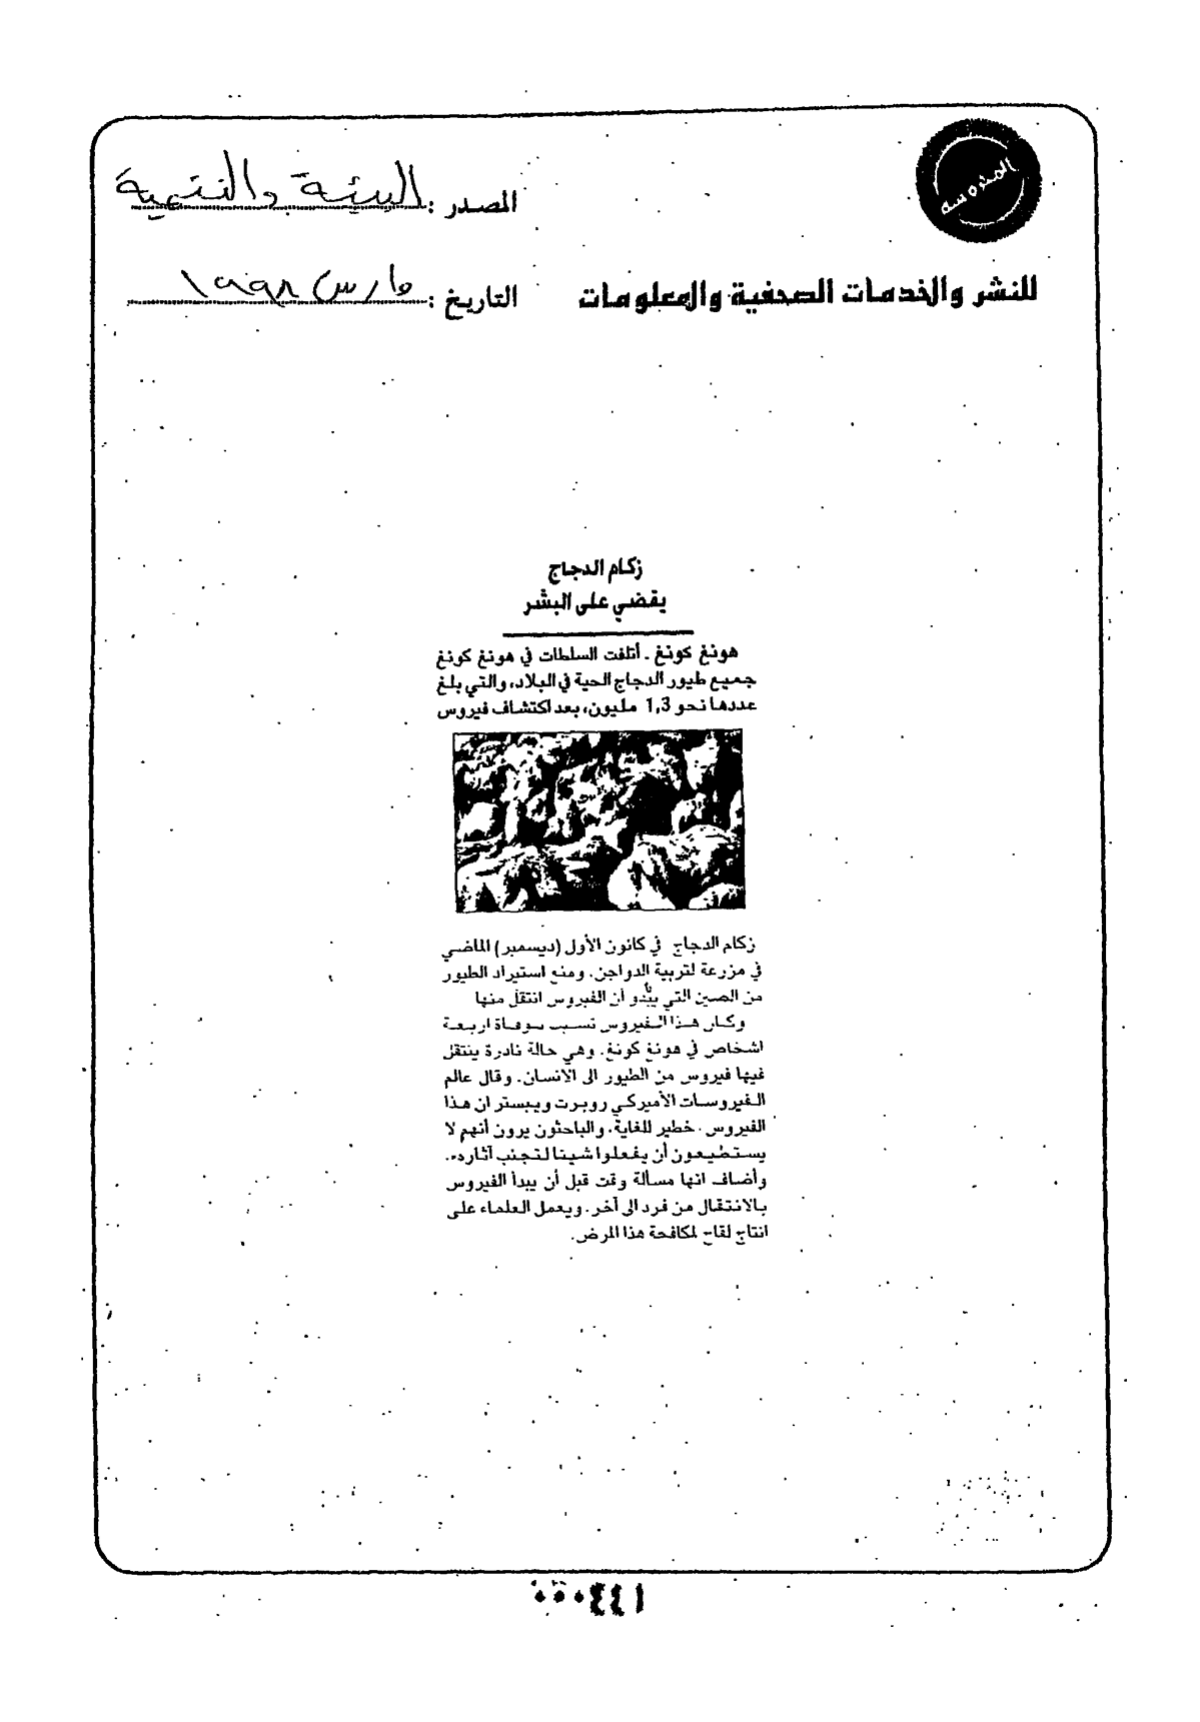 المحروسة
المصدر : البيئة والتنمية
للنشر والخدمات الصحفية والمعلومات
التاريخ : مارس ١٩٩٨
زكام الدجاج
يقضي على البشر
هونغ كونغ ـ أتلفت السلطات في هونغ كونغ
جميع طيور الدجاج الحية في البلاد، والتي بلغ
عددها نحو 1,3 مليون، بعد اكتشاف فيروس
زكام الدجاج في كانون الأول (ديسمبر) الماضي
في مزرعة لتربية الدواجن. ومنع استيراد الطيور
من الصين التي يبدو أن الفيروس انتقل منها
وكان هذا الفيروس تسبب بوفاة اربعة
اشخاص في هونغ كونغ. وهي حالة نادرة ينتقل
فيها فيروس من الطيور الى الانسان. وقال عالم
الفيروسات الأميركي روبرت ويبستر ان هذا
الفيروس خطير للغاية، والباحثون يرون أنهم لا
يستطيعون أن يفعلوا شيئا لتجنب آثاره.
وأضاف انها مسألة وقت قبل أن يبدأ الفيروس
بالانتقال من فرد الى آخر. ويعمل العلماء على
انتاج لقاح لمكافحة هذا المرض.